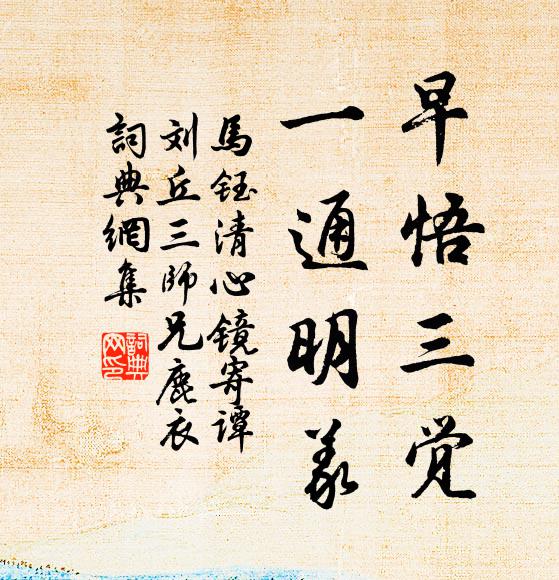 早悟三覚
一通明義
馬钰清心镜寄谭
刘丘三師兄鹿衣
詞典網集
詞典
网印